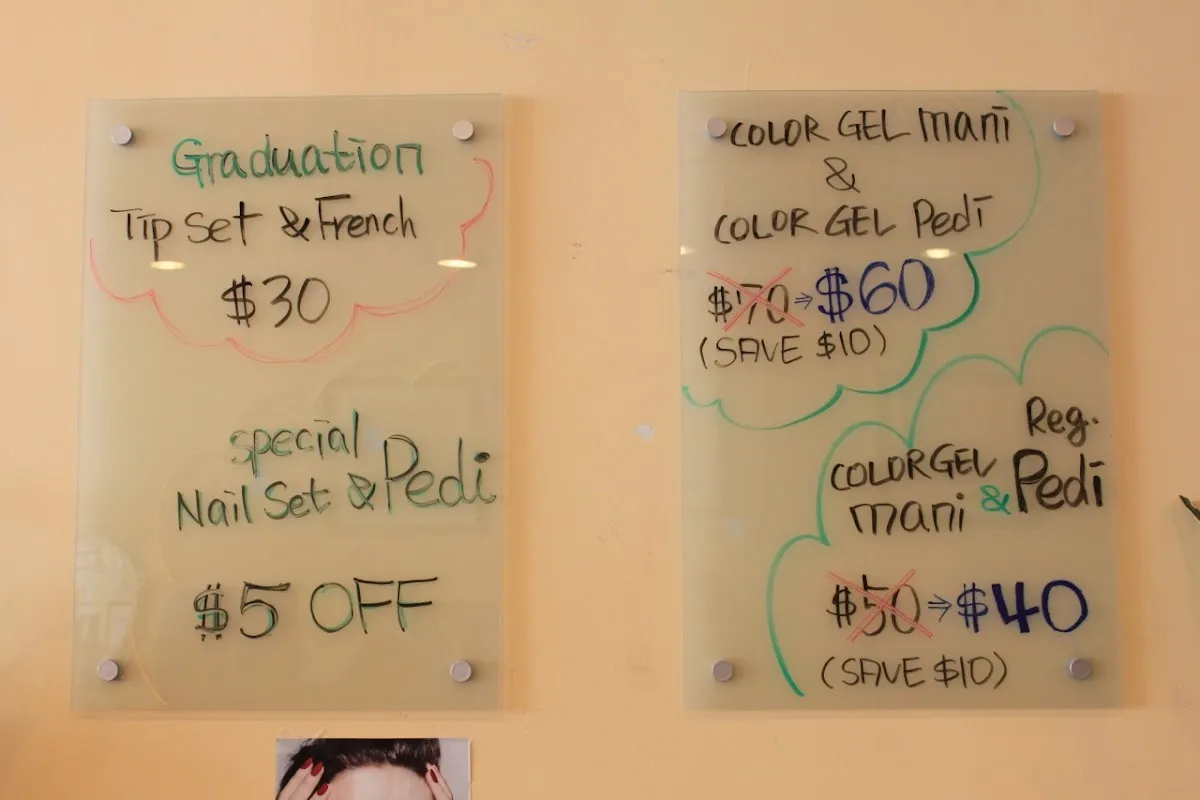 Graduation
Tip Set & French
$30
special
Nail Set & Pedi
$5 OFF
COLOR GEL mani
&
COLOR GEL Pedi
$70 ⇒ $60
(SAVE $10)
Reg.
COLOR GEL
mani & Pedi
$50 ⇒ $40
(SAVE $10)